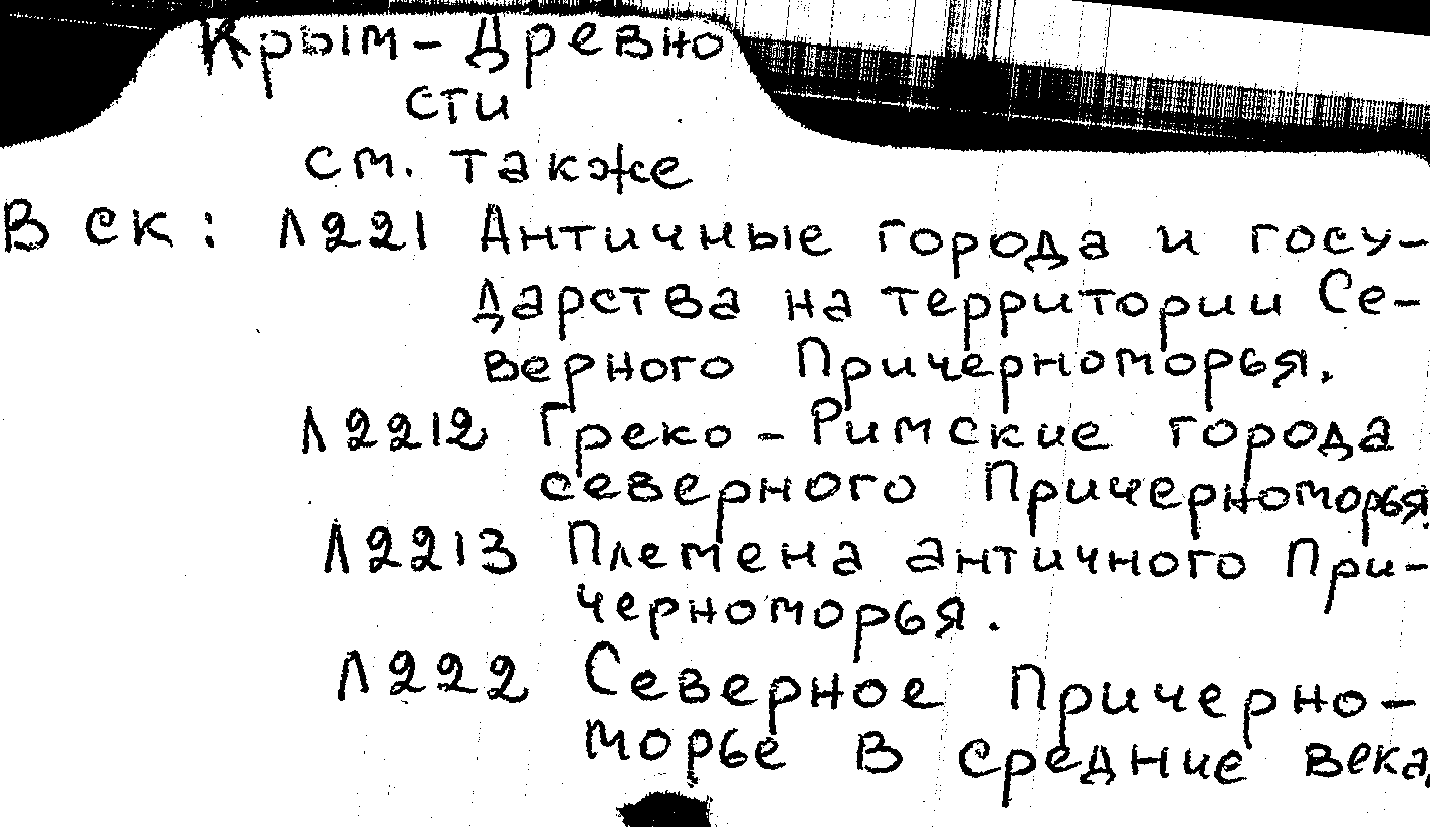 Крым-Древно
сти
см. также
В ск: Л221 Античные города и госу-
дарства на территории Се-
верного Причерноморья.
Л2212 Греко-Римские города
северного Причерноморья.
Л2213 Племена античного При-
черноморья.
Л222 Северное Причерно-
морье в средние века,